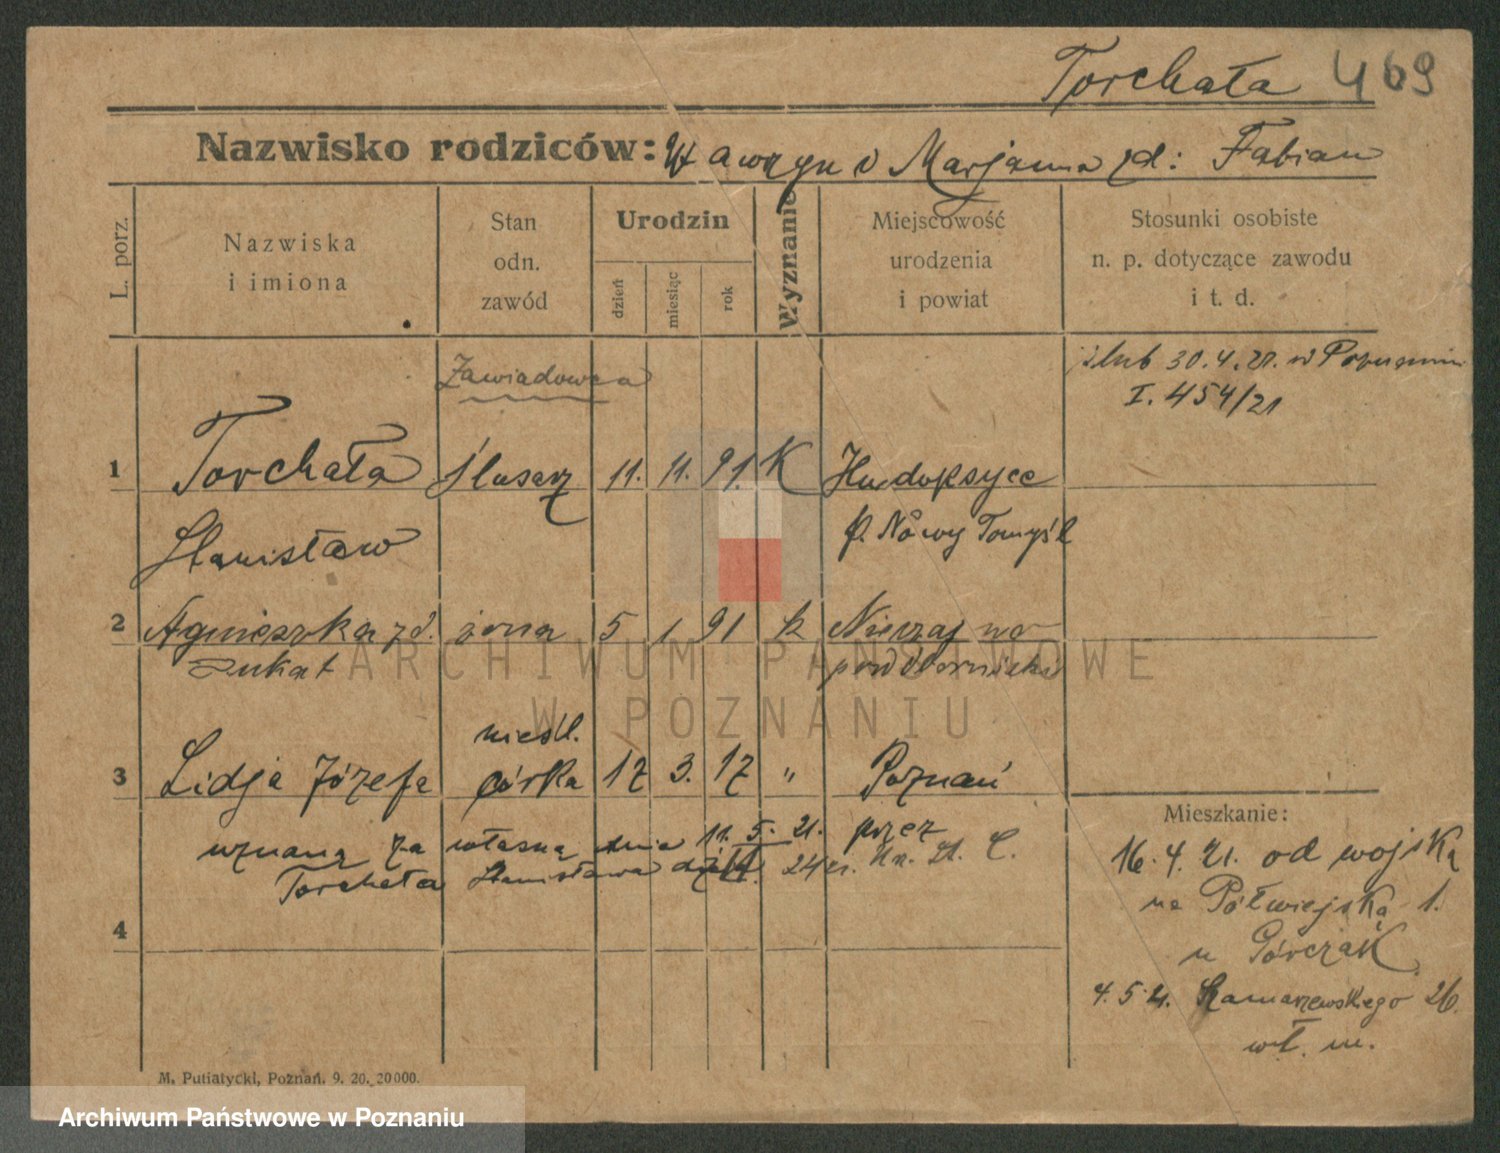 Torchała 469
Nazwisko rodziców: Wawrzyn i Marjanna zd: Fabian
L. porz.
Nazwiska
i imiona
Stan
odn.
zawód
Urodzin
dzień
miesiąc
rok
Wyznanie
Miejscowość
urodzenia
i powiat
Stosunki osobiste
n. p. dotyczące zawodu
i t. d.
Zawiadowca
ślub 30.4.21. w Poznaniu
I. 454/21
1 Torchała ślusarz 11. 11. 91. K
Stanisław p. Nowy Tomyśl
2 Agnieszka zd. żona 5 1 91 k
Żukat
nieśl.
3 Lidja Józefa córka 17 3. 17 " Poznań
uznana za własną dnia 11. 5. 21. przez
Torchała Stanisława
4
Mieszkanie:
16. 4. 21. od wojska
na Półwiejską 1.
u Górczak
4. 5. 21. Szamarzewskiego 26.
wł. m.
M. Putiatycki, Poznań. 9. 20. 20000.
ARCHIWUM PAŃSTWOWE
W POZNANIU
Archiwum Państwowe w Poznaniu